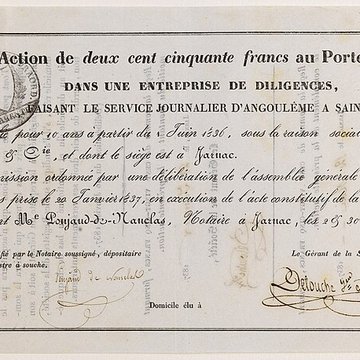 Action de deux cent cinquante francs au Porte
DANS UNE ENTREPRISE DE DILIGENCES,
FAISANT LE SERVICE JOURNALIER D'ANGOULÊME A SAIN
pour 10 ans à partir du 1 Juin 1836, sous la raison social
& Cie, et dont le siège est à Jarnac.
mission ordonnée par une délibération de l'assemblée générale
prise le 20 Janvier 1837, en exécution de l'acte constitutif de la
Me Poujaud-de-Nanclas, Notaire à Jarnac, les 2 & 30
fié par le Notaire soussigné, dépositaire
stre à souche.
Le Gérant de la S
Poujaud de Nanclas
Detouche
Domicile élu à